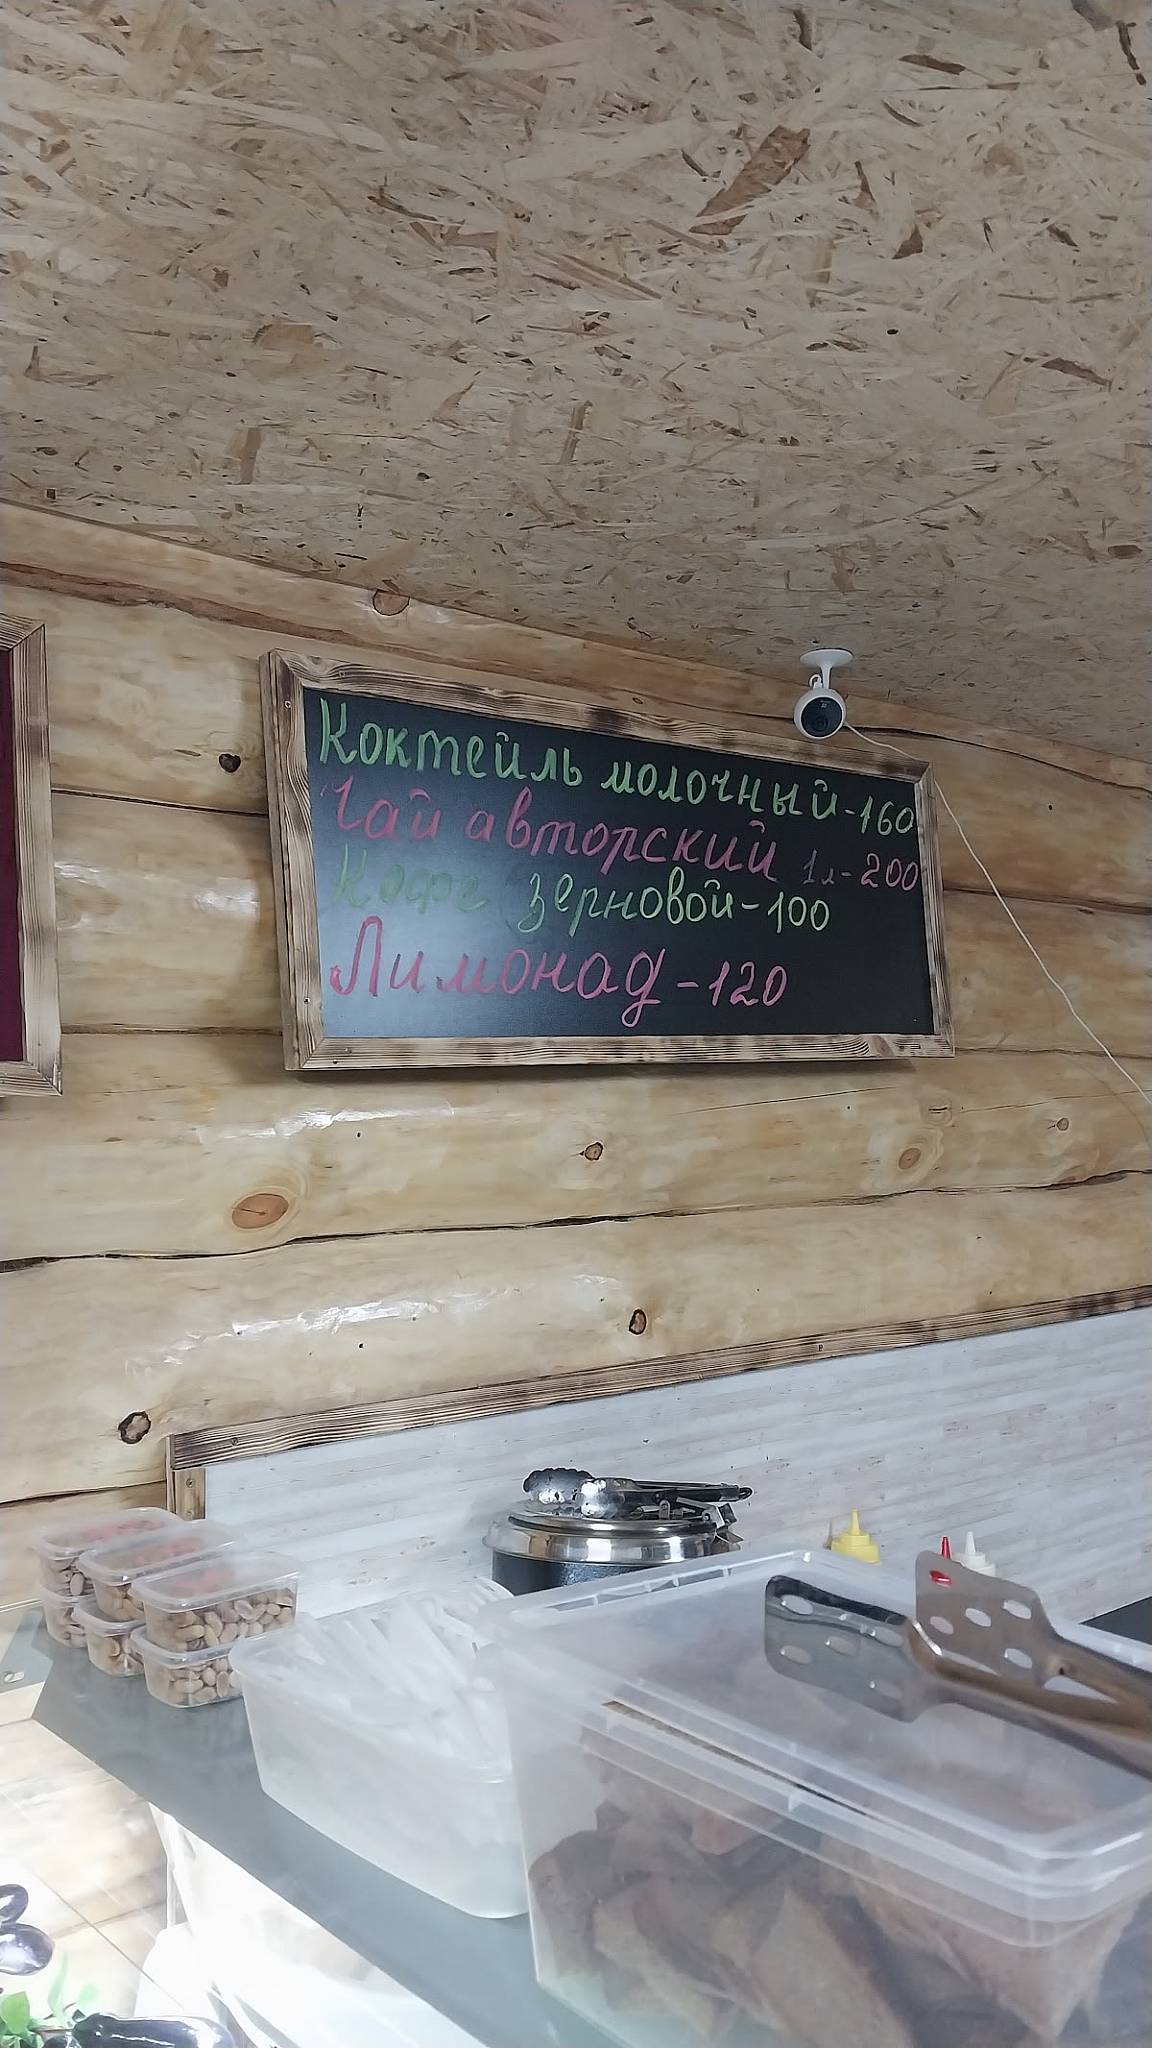 Коктейль молочный-160
Чай авторский 1л-200
Кофе зерновой-100
Лимонад-120